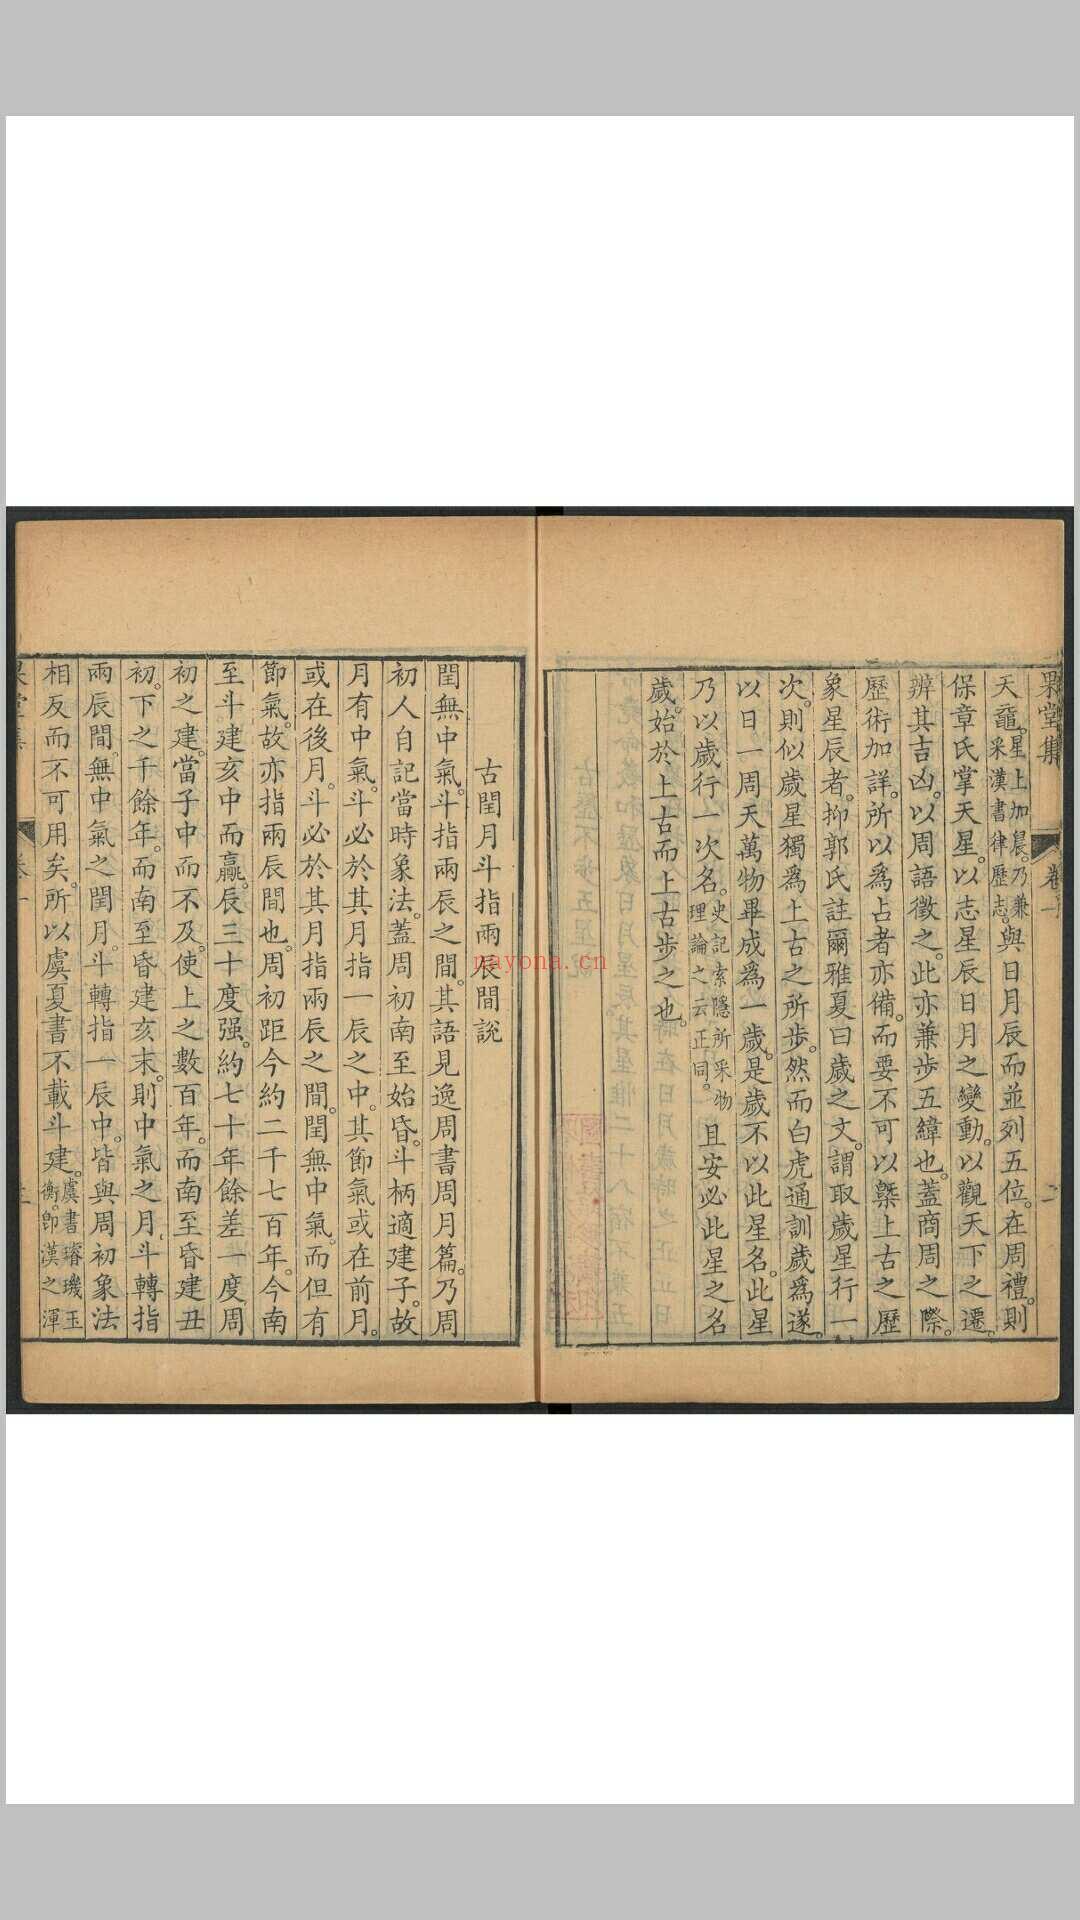 果堂集
卷一
二
天黿。星上加晨。乃兼采漢書律歷志。與日月辰而並列五位。在周禮。則
保章氏掌天星。以志星辰日月之變動。以觀天下之遷。
辨其吉凶。以周語徵之。此亦兼步五緯也。蓋商周之際。
歷術加詳。所以為占者亦備。而要不可以槩上古之歷
象星辰者。抑郭氏註爾雅夏曰歲之文。謂取歲星行一
次。則似歲星獨為上古之所步。然而白虎通訓歲為遂。
以日一周天萬物畢成為一歲。是歲不以此星名。此星
乃以歲行一次名。史記索隱所采物理論之云正同。且安必此星之名
歲。始於上古而上古步之也。
古閏月斗指兩辰間說
閏無中氣。斗指兩辰之間。其語見逸周書周月篇。乃周
初人自記當時象法。蓋周初南至始昏。斗柄適建子。故
月有中氣。斗必於其月指一辰之中。其節氣或在前月。
或在後月。斗必於其月指兩辰之間。閏無中氣。而但有
節氣。故亦指兩辰間也。周初距今約二千七百年。今南
至斗建亥中而贏。辰三十度强。約七十年餘差一度。周
初之建。當子中而不及。使上之數百年。而南至昏建丑
初。下之千餘年。而南至昏建亥末。則中氣之月。斗轉指
兩辰間。無中氣之閏月。斗轉指一辰中。皆與周初象法
相反而不可用矣。所以虞夏書不載斗建。虞書璿璣玉衡。卽漢之渾
nayona.cn